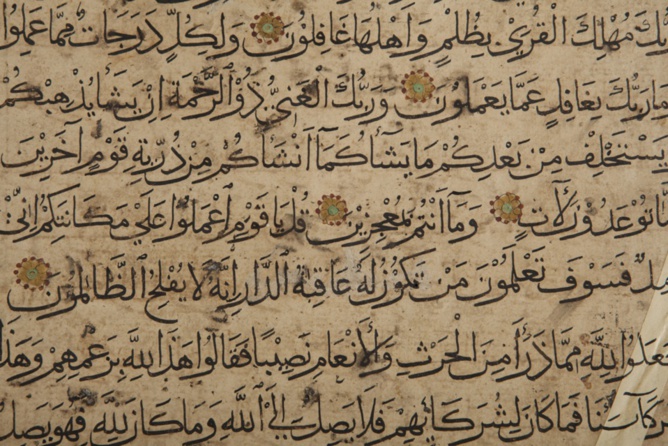 ربك مهلك القرى بظلم وأهلها غافلون ولكل درجات مما عملوا
ما ربك بغافل عما يعملون وربك الغني ذو الرحمة إن يشأ يذهبكم
ويستخلف من بعدكم ما يشاء كما أنشأكم من ذرية قوم آخرين
ما توعدون لآت وما أنتم بمعجزين قل يا قوم اعملوا على مكانتكم إني
فسوف تعلمون من تكون له عاقبة الدار إنه لا يفلح الظالمون
جعلوا لله مما ذرأ من الحرث والأنعام نصيبا فقالوا هذا لله بزعمهم وهذا
شركائنا فما كان لشركائهم فلا يصل إلى الله وما كان لله فهو يصل